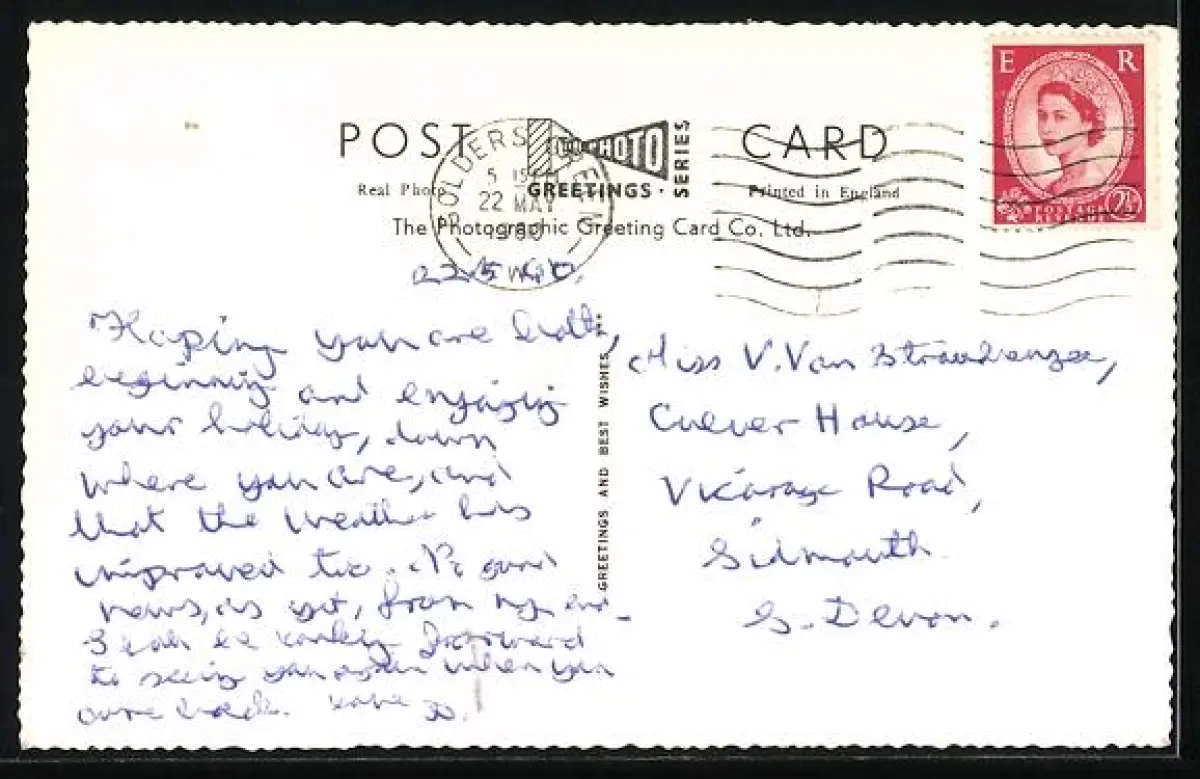 E R
POSTAGE
REVENUE
2½
POST CARD
PHOTO
SERIES
GREETINGS
Real Photo
Printed in England
The Photographic Greeting Card Co. Ltd.
22 MAY
1960
GREETINGS AND BEST WISHES
Hoping you are both,
beginning and enjoying
your holiday, down
where you are, and
that the weather has
improved too. No good
news, as yet, from my end.
forward
to seeing you again when you
come back. Love
Miss V. Van Straubenzee,
Culver House,
Vicarage Road,
Sidmouth
S. Devon.